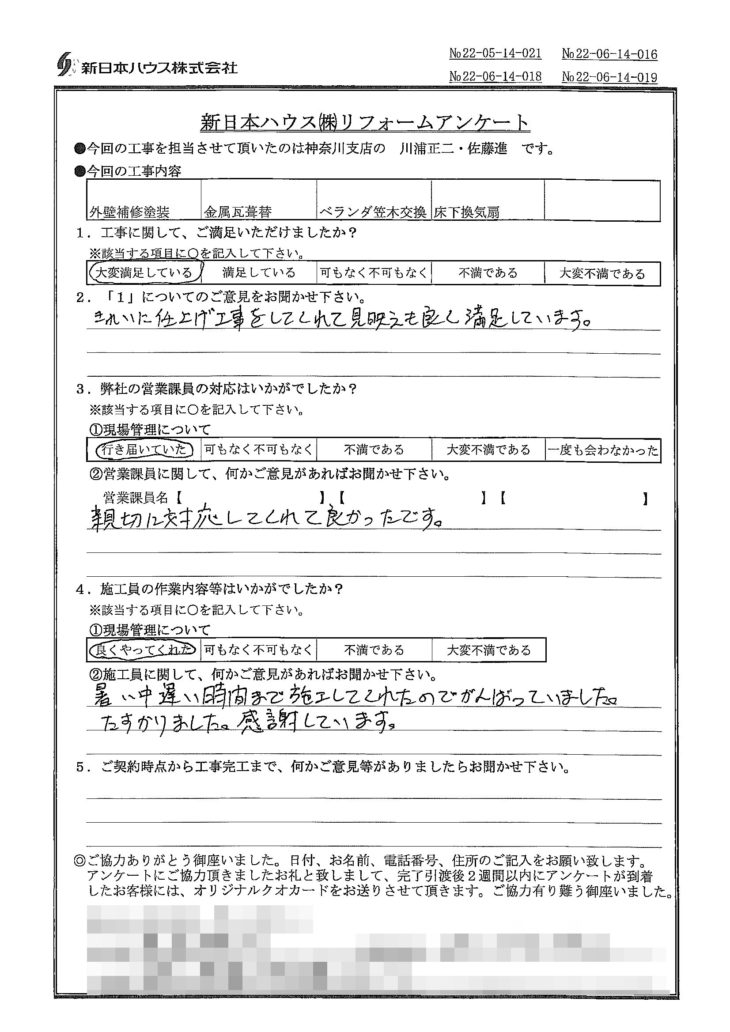 新日本ハウス株式会社
№22-05-14-021 №22-06-14-016
№22-06-14-018 №22-06-14-019
新日本ハウス㈱リフォームアンケート
●今回の工事を担当させて頂いたのは神奈川支店の 川浦正二・佐藤進 です。
●今回の工事内容
外壁補修塗装 金属瓦葺替 ベランダ笠木交換 床下換気扇
1．工事に関して、ご満足いただけましたか？
※該当する項目に○を記入して下さい。
大変満足している 満足している 可もなく不可もなく 不満である 大変不満である
2．「1」についてのご意見をお聞かせ下さい。
きれいに仕上げ工事をしてくれて見映えも良く満足しています。
3．弊社の営業課員の対応はいかがでしたか？
※該当する項目に○を記入して下さい。
①現場管理について
行き届いていた 可もなく不可もなく 不満である 大変不満である 一度も会わなかった
②営業課員に関して、何かご意見があればお聞かせ下さい。
営業課員名【 】【 】【 】
親切に対応してくれて良かったです。
4．施工員の作業内容等はいかがでしたか？
※該当する項目に○を記入して下さい。
①現場管理について
良くやってくれた 可もなく不可もなく 不満である 大変不満である
②施工員に関して、何かご意見があればお聞かせ下さい。
暑い中遅い時間まで施工してくれたのでがんばっていました。
たすかりました。感謝しています。
5．ご契約時点から工事完工まで、何かご意見等がありましたらお聞かせ下さい。
◎ご協力ありがとう御座いました。日付、お名前、電話番号、住所のご記入をお願い致します。
アンケートにご協力頂きましたお礼と致しまして、完了引渡後2週間以内にアンケートが到着
したお客様には、オリジナルクオカードをお送りさせて頂きます。ご協力有り難う御座いました。